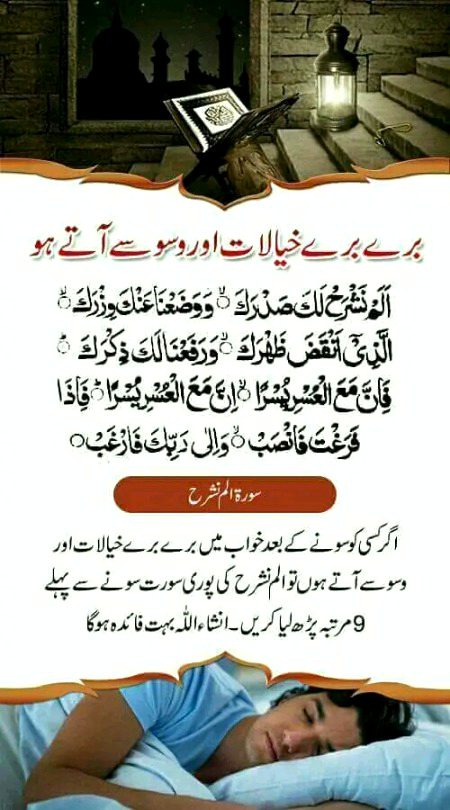 برے برے خیالات اور وسوسے آتے ہو
اَلَمْ نَشْرَحْ لَكَ صَدْرَكَ ۙ وَوَضَعْنَا عَنْكَ وِزْرَكَ ۙ
الَّذِیْۤ اَنْقَضَ ظَهْرَكَ ۙ وَرَفَعْنَا لَكَ ذِكْرَكَ ؕ
فَاِنَّ مَعَ الْعُسْرِ یُسْرًا ۙ اِنَّ مَعَ الْعُسْرِ یُسْرًا ؕ فَاِذَا
فَرَغْتَ فَانْصَبْ ۙ وَاِلٰى رَبِّكَ فَارْغَبْ ۝
سورۃ الم نشرح
اگر کسی کو سونے کے بعد خواب میں برے برے خیالات اور
وسوسے آتے ہوں تو الم نشرح کی پوری سورت سونے سے پہلے
9 مرتبہ پڑھ لیا کریں۔ انشاء اللہ بہت فائدہ ہوگا